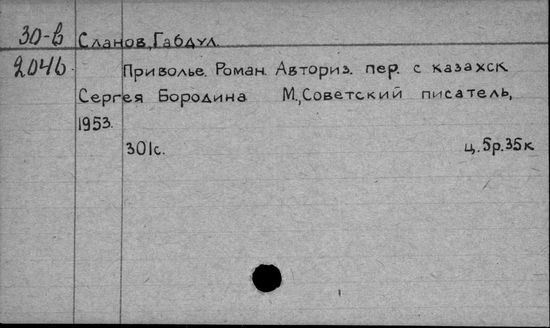 30-в Сланов, Габдул.
2046 Приволье. Роман. Авториз. пер. с казахск
Сергея Бородина М., Советский писатель,
1953.
301с. ц. 5р. 35к